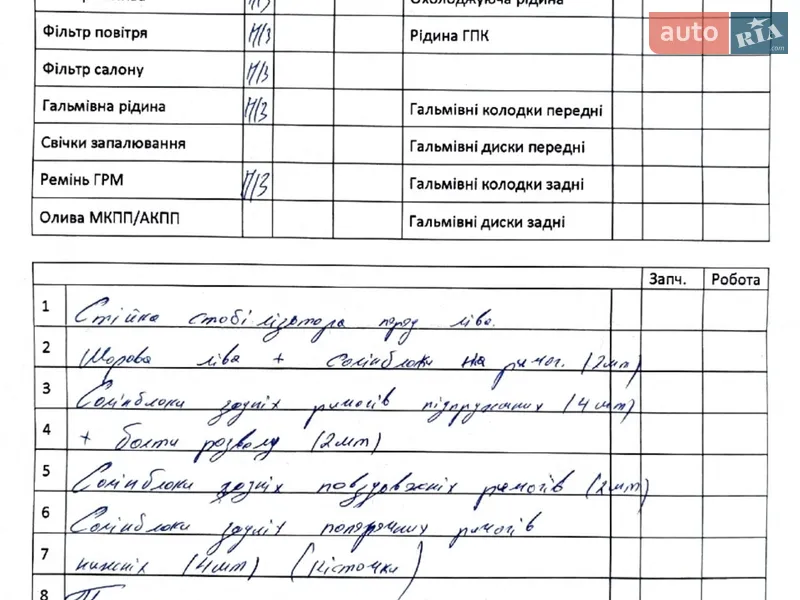 Охолоджуюча рідина
Фільтр повітря П/З Рідина ГПК
Фільтр салону П/З
Гальмівна рідина П/З Гальмівні колодки передні
Свічки запалювання Гальмівні диски передні
Ремінь ГРМ П/З Гальмівні колодки задні
Олива МКПП/АКПП Гальмівні диски задні
auto RIA.com
Запч. Робота
1 Стійка стобілізатора перд ліва.
2 Шорова ліва + Солінблоки на римог. (2шт)
3 Солінблоки задніх римогів підпружиних (4шт)
4 + болти розвалу (2шт)
5 Солінблоки задніх повздовжніх римогів (2шт)
6 Солінблоки задніх поперечних римогів
7 нижніх (4шт) (кісточки)
8